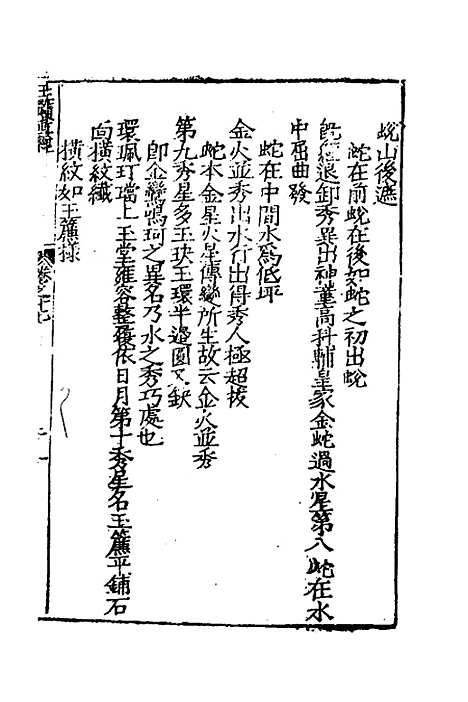 蛻山後遮
蛇在前蛻在後如蛇之初出蛻
旣經退卸秀異出神童高科輔皇家金蛇過水星第八蛇在水
中屈曲發
蛇在中間水爲低坪
金火並秀出水行出得秀人極超拔
蛇本金星火星傳變所生故云金火並秀
第九秀星多玉玦玉環半邊圓又缺
卽金鸞鳴珂之異名乃水之秀巧處也
環珮玎璫上玉堂雍容整履依日月第十秀星名玉簾平鋪石
面橫紋纖
橫紋如玉簾樣